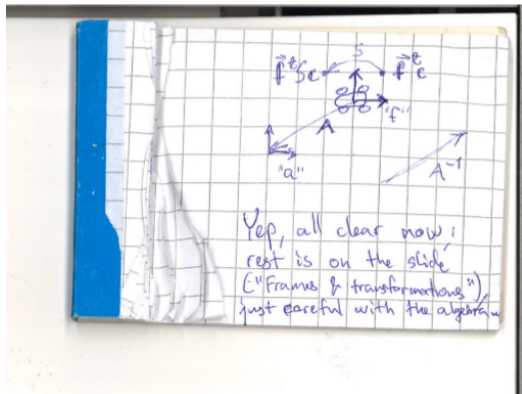 S
f⃗ᵗSc f⃗ᵗc
"f"
A
"a"
A⁻¹
Yep, all clear now;
rest is on the slide
("Frames & transformations"),
just careful with the algebra